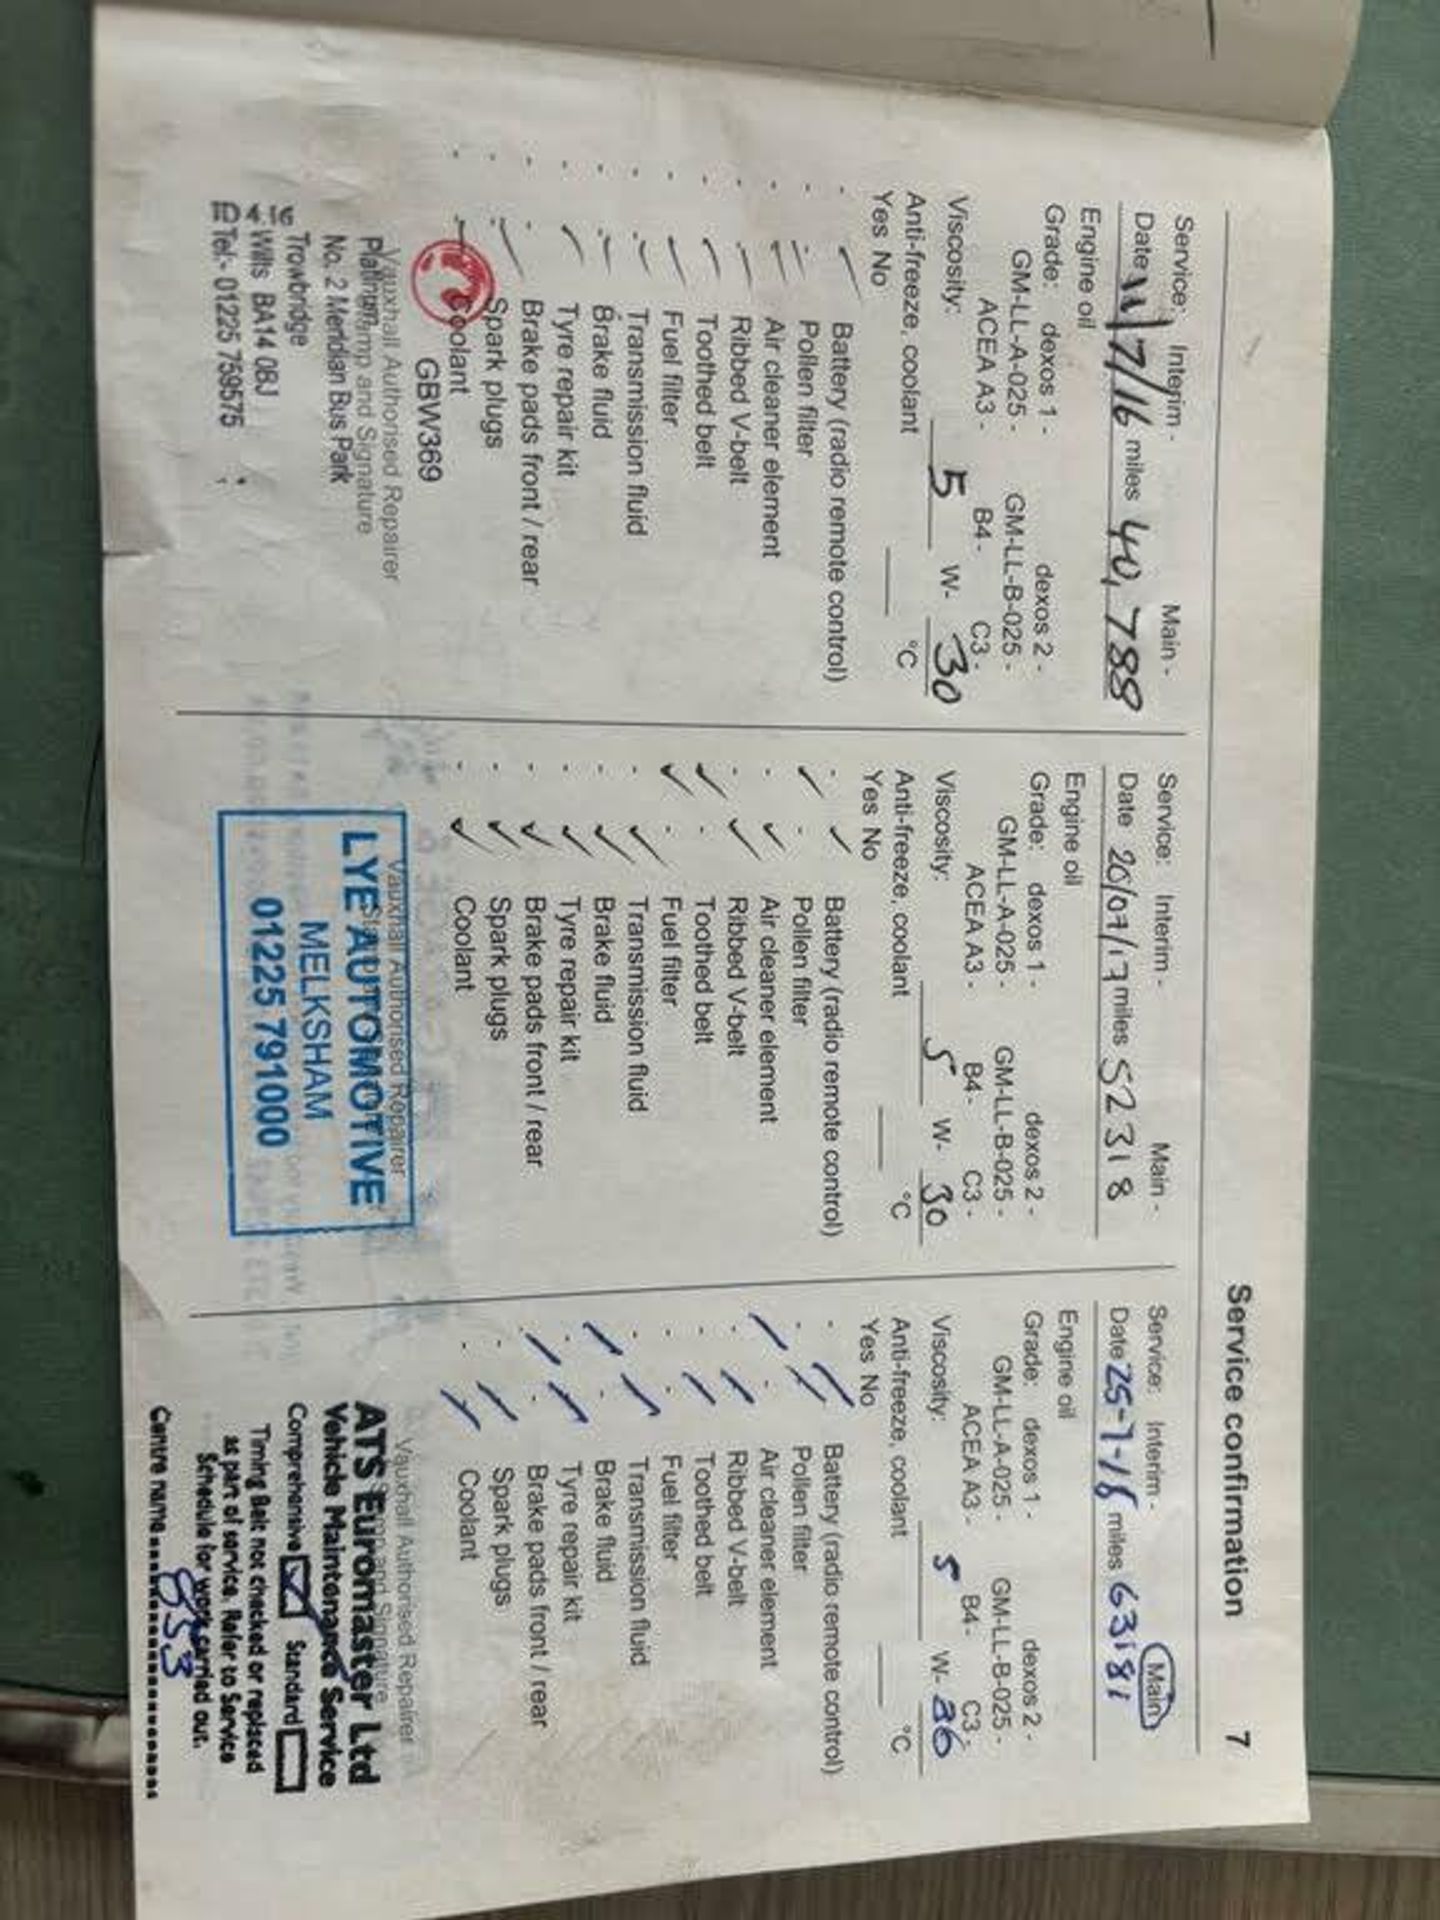 Service confirmation 7
Service: Interim - Main -
Date 11/7/16 miles 40,788
Engine oil
Grade: dexos 1 - dexos 2 -
GM-LL-A-025 - GM-LL-B-025 -
ACEA A3 - B4 - C3 -
Viscosity: 5 W- 30
Anti-freeze, coolant °C
Yes No
Battery (radio remote control)
Pollen filter
Air cleaner element
Ribbed V-belt
Toothed belt
Fuel filter
Transmission fluid
Brake fluid
Tyre repair kit
Brake pads front / rear
Spark plugs
Coolant
GBW369
Vauxhall Authorised Repairer
Stamp and Signature
Platinum
No. 2 Meridian Bus Park
Trowbridge
Wilts BA14 0BJ
Tel:- 01225 759575
Service: Interim - Main -
Date 20/07/17 miles 52318
Engine oil
Grade: dexos 1 - dexos 2 -
GM-LL-A-025 - GM-LL-B-025 -
ACEA A3 - B4 - C3 -
Viscosity: 5 W- 30
Anti-freeze, coolant °C
Yes No
Battery (radio remote control)
Pollen filter
Air cleaner element
Ribbed V-belt
Toothed belt
Fuel filter
Transmission fluid
Brake fluid
Tyre repair kit
Brake pads front / rear
Spark plugs
Coolant
Vauxhall Authorised Repairer
LYE AUTOMOTIVE
MELKSHAM
01225 791000
Service: Interim - Main
Date 25-7-18 miles 63181
Engine oil
Grade: dexos 1 - dexos 2 -
GM-LL-A-025 - GM-LL-B-025 -
ACEA A3 - B4 - C3 -
Viscosity: 5 W-
Anti-freeze, coolant °C
Yes No
Battery (radio remote control)
Pollen filter
Air cleaner element
Ribbed V-belt
Toothed belt
Fuel filter
Transmission fluid
Brake fluid
Tyre repair kit
Brake pads front / rear
Spark plugs
Coolant
Vauxhall Authorised Repairer
Stamp and Signature
ATS Euromaster Ltd
Vehicle Maintenance Service
Comprehensive Standard
Timing Belt not checked or replaced
as part of service. Refer to Service
Schedule for work carried out.
Centre name 853